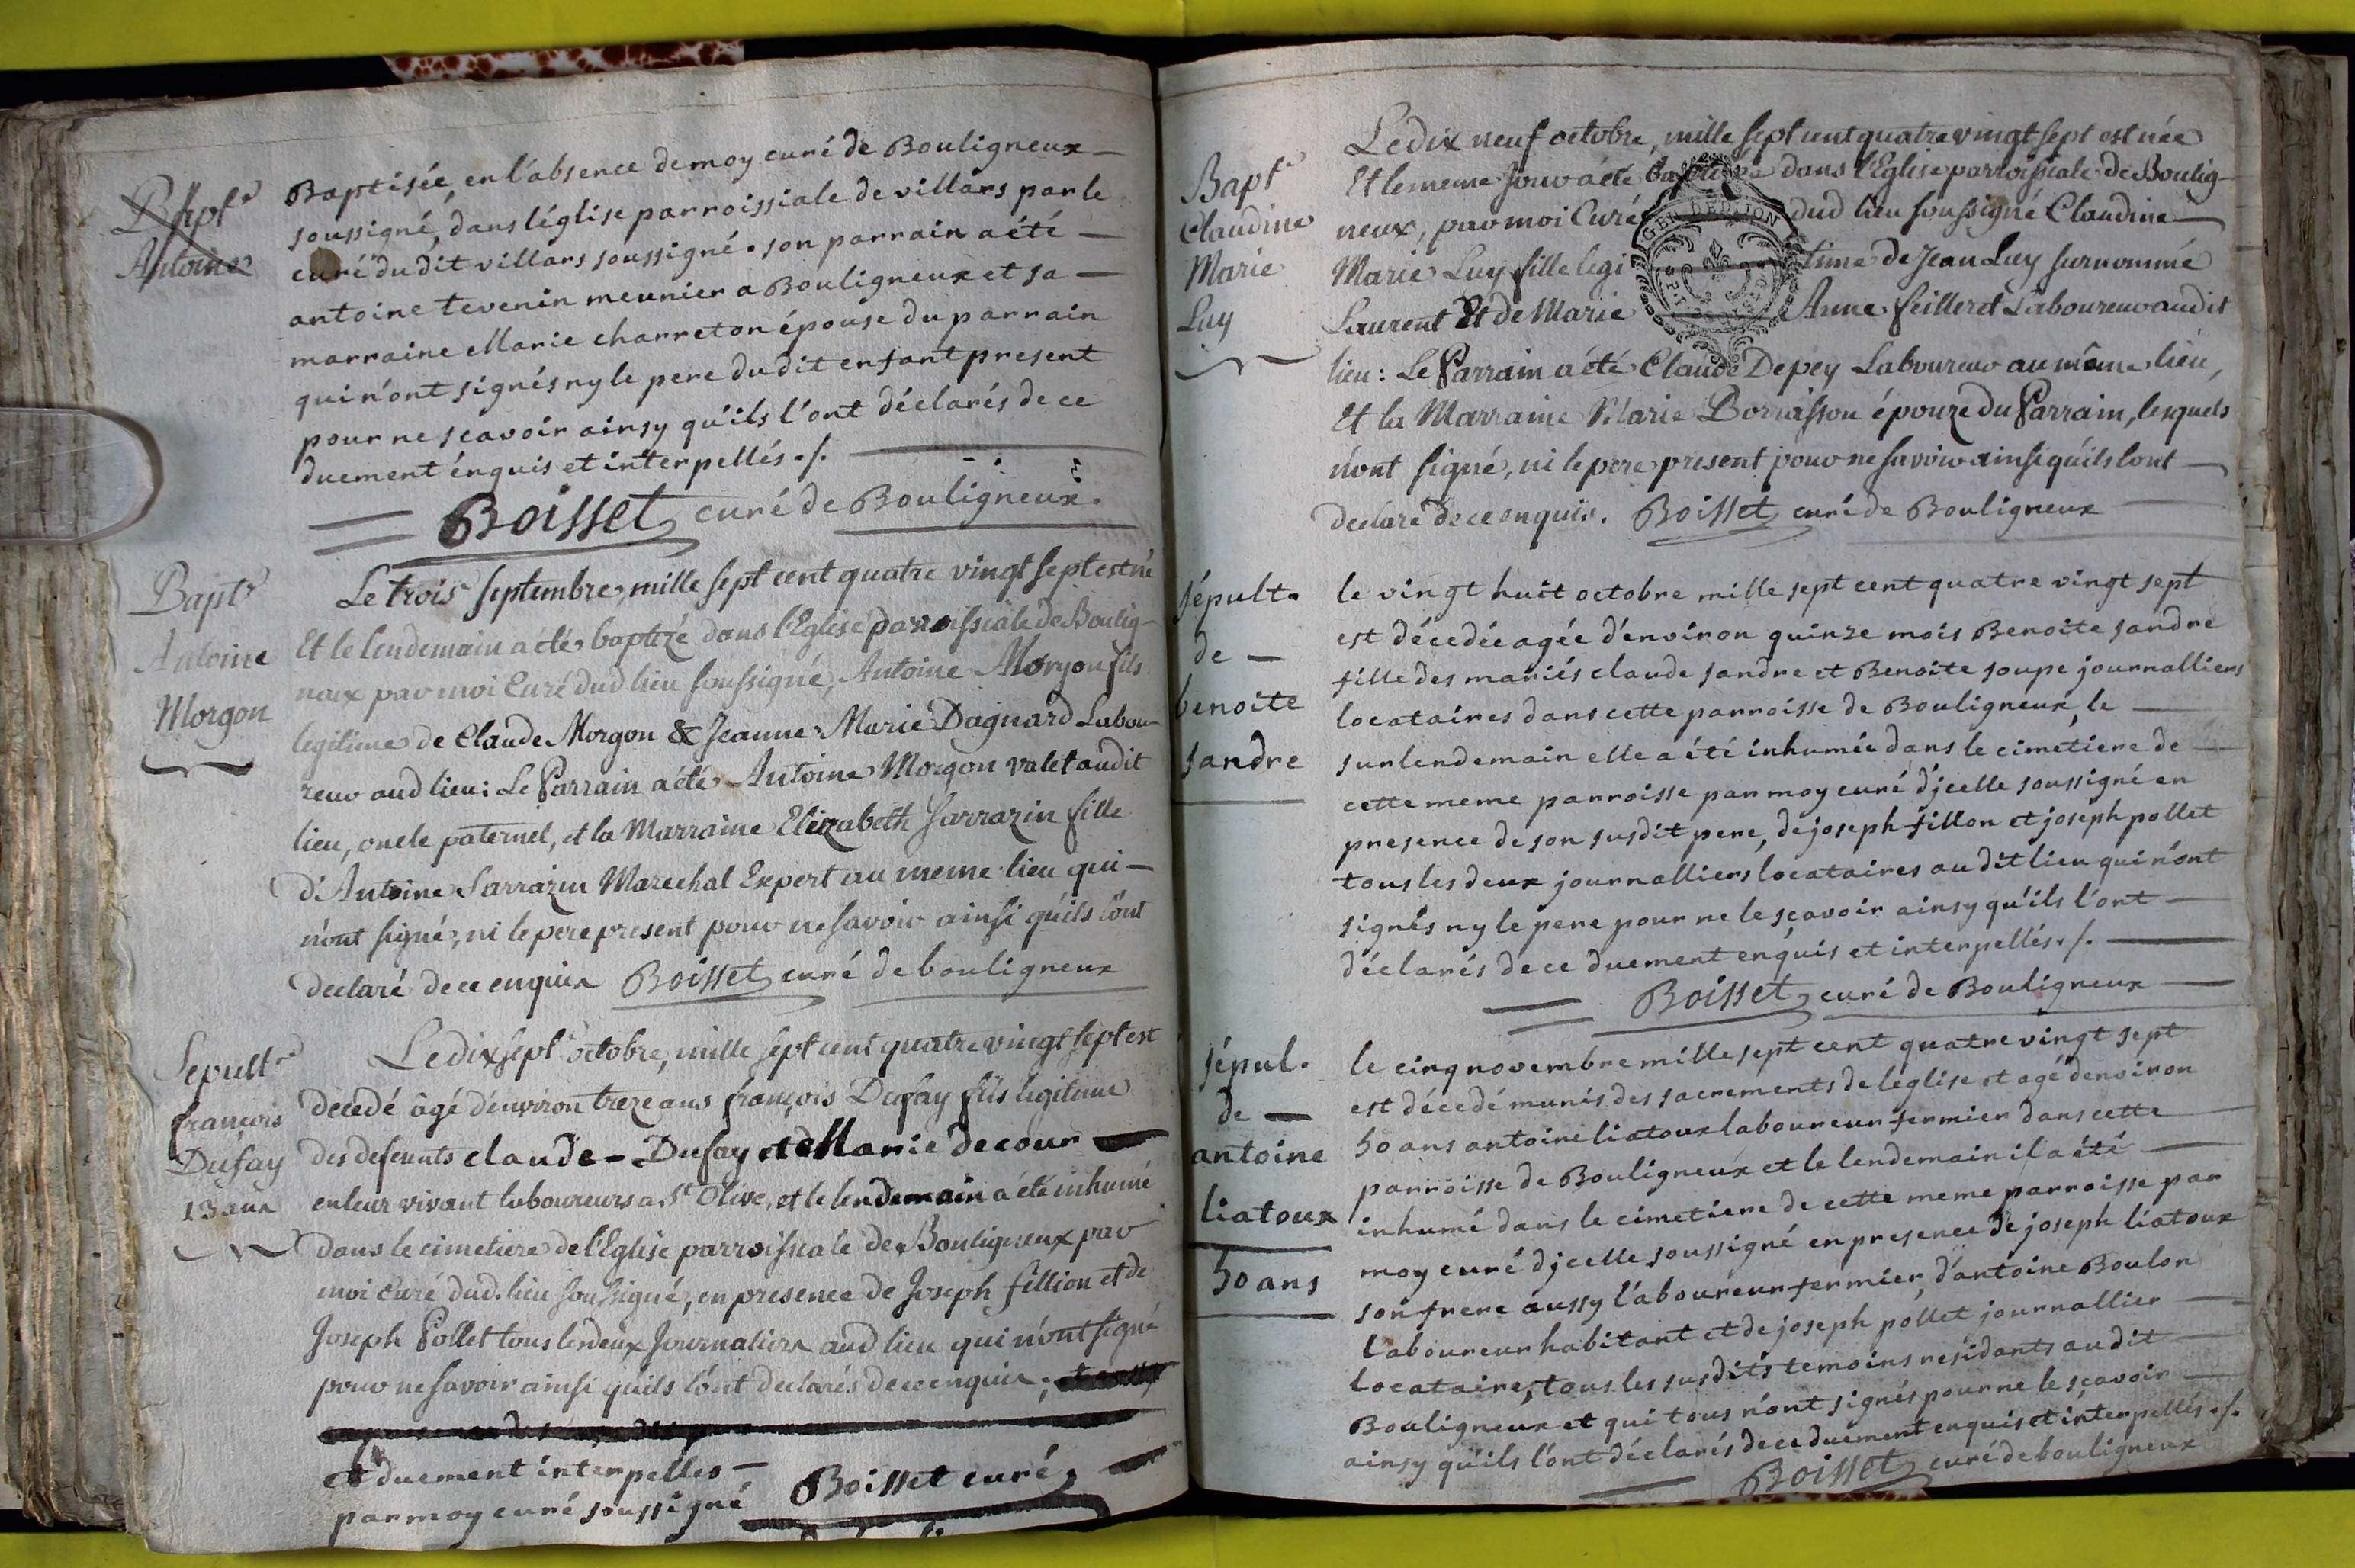 Bapt.
Antoine
Baptisée, en l'absence de moy curé de Bouligneux
soussigné, dans léglise parroissiale de villars par le
curé dudit villars soussigné. son parrain a été
antoine tevenin meunier a Bouligneux et sa
marraine Marie charreton épouse du parrain
qui n'ont signés ny le pere dudit enfant present
pour ne scavoir ainsy qu'ils l'ont déclarés de ce
duement énquis et interpellés ./.
Boisset curé de Bouligneux.
Bapt.
Antoine
Morgon
Le trois septembre, mille sept cent quatre vingt sept est né
Et le lendemain a été baptizé dans l'Eglise parroissiale de Boulig-
neux par moi Curé dud lieu soussigné, Antoine Morgon fils
legitime de Claude Morgon & Jeanne Marie Dagnard Labou-
reur aud lieu: Le Parrain a été Antoine Morgon valet audit
lieu, oncle paternel, et la Marraine Elizabeth Sarrazin fille
d'Antoine Sarrazin Marechal Expert au meme lieu qui
n'ont signé, ni le pere present pour ne savoir ainsi qu'ils l'ont
declaré de ce enquis Boisset curé de bouligneux
Sepult.
françois
Dufay
13 ans
Le dix sept octobre, mille sept cent quatre vingt sept est
decedé âgé d'environ treze ans françois Dufay fils legitime
des defeunts claude - Dufay et de Marie decour
en leur vivant laboureurs a St Olive, et le lendemain a été inhumé
dans le cimetiere de l'Eglise parroissiale de Bouligneux par
moi Curé dud. lieu soussigné, en presence de Joseph fillion et de
Joseph Pollet tous les deux Journaliers aud lieu qui n'ont signé
pour ne savoir ainsi qu'ils l'ont declarés de ce enquis,
et duement interpelles
par moy curé soussigné Boisset curé
Bapt.
Claudine
Marie
Luy
Le dix neuf octobre, mille sept cent quatre vingt sept est née
Et le meme jour a été baptizée dans l'Eglise parroissiale de Boulig-
neux, par moi Curé dud lieu soussigné Claudine
Marie Luy fille legitime de Jean Luy surnommé
Laurent Et de Marie Anne feilleret Laboureur audit
lieu: Le Parrain a été Claude Depey Laboureur au même lieu,
Et la Marraine Marie Borrasson épouze du Parrain, lesquels
n'ont signé, ni le pere present pour ne savoir ainsi qu'ils l'ont
declaré de ce enquis. Boisset curé de Bouligneux
GEN DE DIJON
sépult.
de
benoite
sandre
le vingt huit octobre mille sept cent quatre vingt sept
est décedée agée d'environ quinze mois Benoite sandre
fille des mariés claude sandre et Benoite soupe journalliers
locataires dans cette parroisse de Bouligneux, le
surlendemain elle a été inhumée dans le cimetiere de
cette meme parroisse par moy curé d'jcelle soussigné en
presence de son susdit pere, de joseph fillon et joseph pollet
tous les deux journalliers locataires audit lieu qui n'ont
signés ny le pere pour ne le sçavoir ainsy qu'ils l'ont
déclarés de ce duement enquis et interpellés ./.
Boisset curé de Bouligneux
sépul.
de
antoine
liatoux
50 ans
le cinq novembre mille sept cent quatre vingt sept
est décedé munis des sacrements de leglise et agé denviron
50 ans antoine liatoux laboureur fermier dans cette
parroisse de Bouligneux et le lendemain il a été
inhumé dans le cimetiere de cette meme parroisse par
moy curé d'jcelle soussigné en presence de joseph liatoux
son frere aussy l'aboureur fermier, d'antoine Boulon
l'aboureur habitant et de joseph pollet journallier
locataire, tous les susdits temoins residants audit
Bouligneux et qui tous n'ont signés pour ne le sçavoir
ainsy qu'ils l'ont déclarés de ce duement enquis et interpellés ./.
Boisset curé de bouligneux